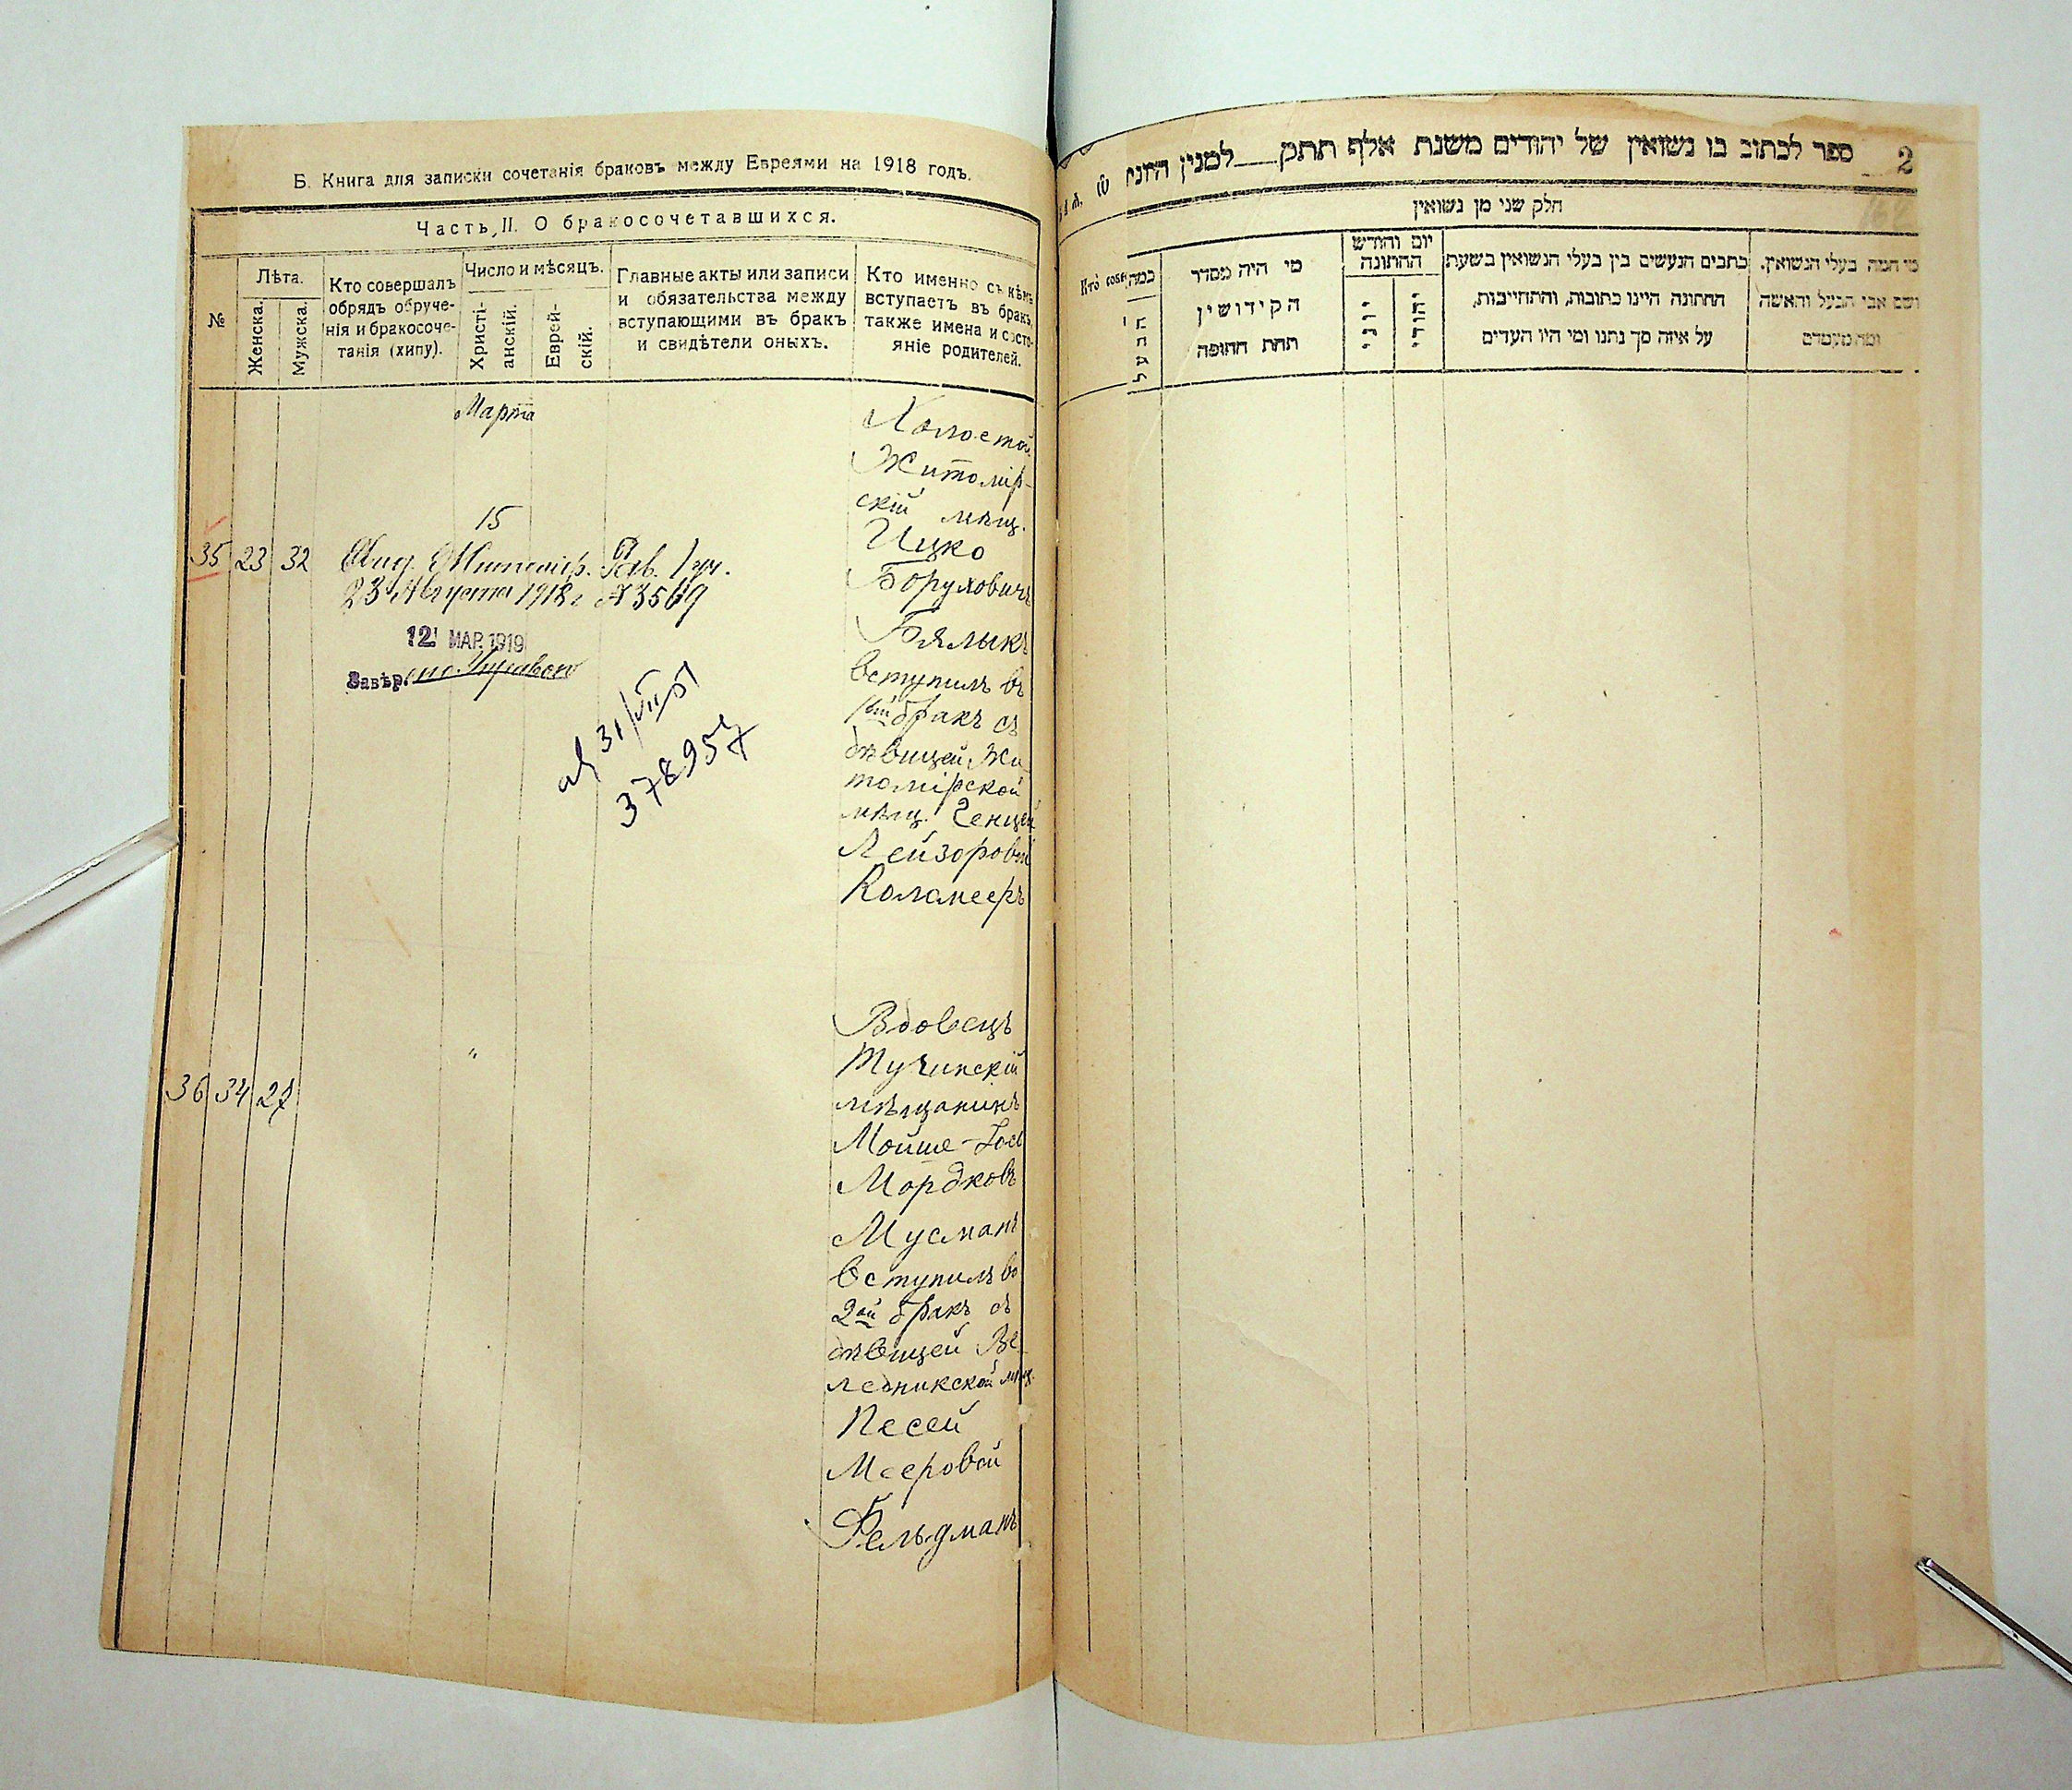 Б. Книга для записки сочетанія браковъ между Евреями на 1918 годъ.
Часть II. О бракосочетавшихся.
№
Лѣта.
Женска.
Мужска.
Кто совершалъ
обрядъ обруче-
нія и бракосоче-
танія (хипу).
Число и мѣсяцъ.
Христі-
анскій.
Еврей-
скій.
Главные акты или записи
и обязательства между
вступающими въ бракъ
и свидѣтели оныхъ.
Кто именно съ кѣмъ
вступаетъ въ бракъ,
также имена и состо-
яніе родителей.
Марта
15
35 23 32
Житомір.
23 Августа 1918 г № 3569
12 МАР. 1919
Завѣр.
31/VII 51
378957
Холостой
Житомір-
скій мѣщ.
Ицко
Боруховичъ
Бялыкъ
вступилъ въ
1ый бракъ съ
дѣвицей Жи-
томірской
мѣщ. Генцей
Лейзоровой
Коломееръ
36 34 27
"
Вдовецъ
Тучинскій
мѣщанинъ
Мойше-Іос
Мордковъ
Мусманъ
вступилъ во
2ой бракъ съ
дѣвицей Ве-
ледникской мѣщ.
Песей
Мееровой
Фельдманъ
ספר לכתוב בו נשואין של יהודים משנת אלף תתק למנין היוני
2
חלק שני מן נשואין
במה
הבעל
מי היה מסדר
הקידושין
תחת החופה
יום וחודש
החתונה
יוני
יהודי
כתבים הנעשים בין בעלי הנשואין בשעת
החתונה היינו כתובות, והתחייבות,
על איזה סך נתנו ומי היו העדים
מי המה בעלי הנשואין.
ושם אבי הבעל והאשה
ומה מעמדם